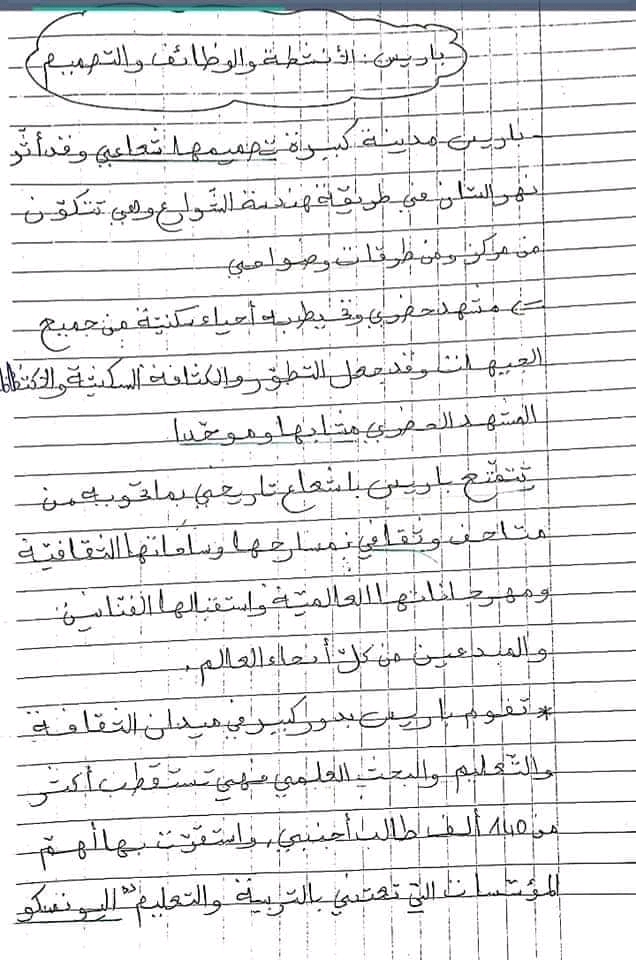 باريس: الأنشطة والوظائف والتصميم
- باريس مدينة كبيرة تصميمها شعاعي وقد أثّر
نهر السّان في طريقة هندسة الشوارع وهي تتكوّن
من مركز ومن طرقات وضواحي
=> مشهد حضري وتحيط به أحياء سكنيّة من جميع
الجهات وقد جعل التطوّر والكثافة السكنيّة والاكتظاظ
المشهد الحضري متشابها وموحّدا
يتمتّع باريس بإشعاع تاريخي بما تحويه من
متاحف وثقافي بمسارحها وساحاتها الثقافيّة
ومهرجاناتها العالميّة واستقبالها الفنّانين
والمبدعين من كلّ أنحاء العالم.
* تقوم باريس بدور كبير في ميدان الثقافة
والتّعليم والبحث العلمي فهي تستقطب أكثر
من 140 ألف طالب أجنبي، واستقرّت بها أهمّ
المؤسّسات التي تعتني بالتربية والتعليم " اليونسكو